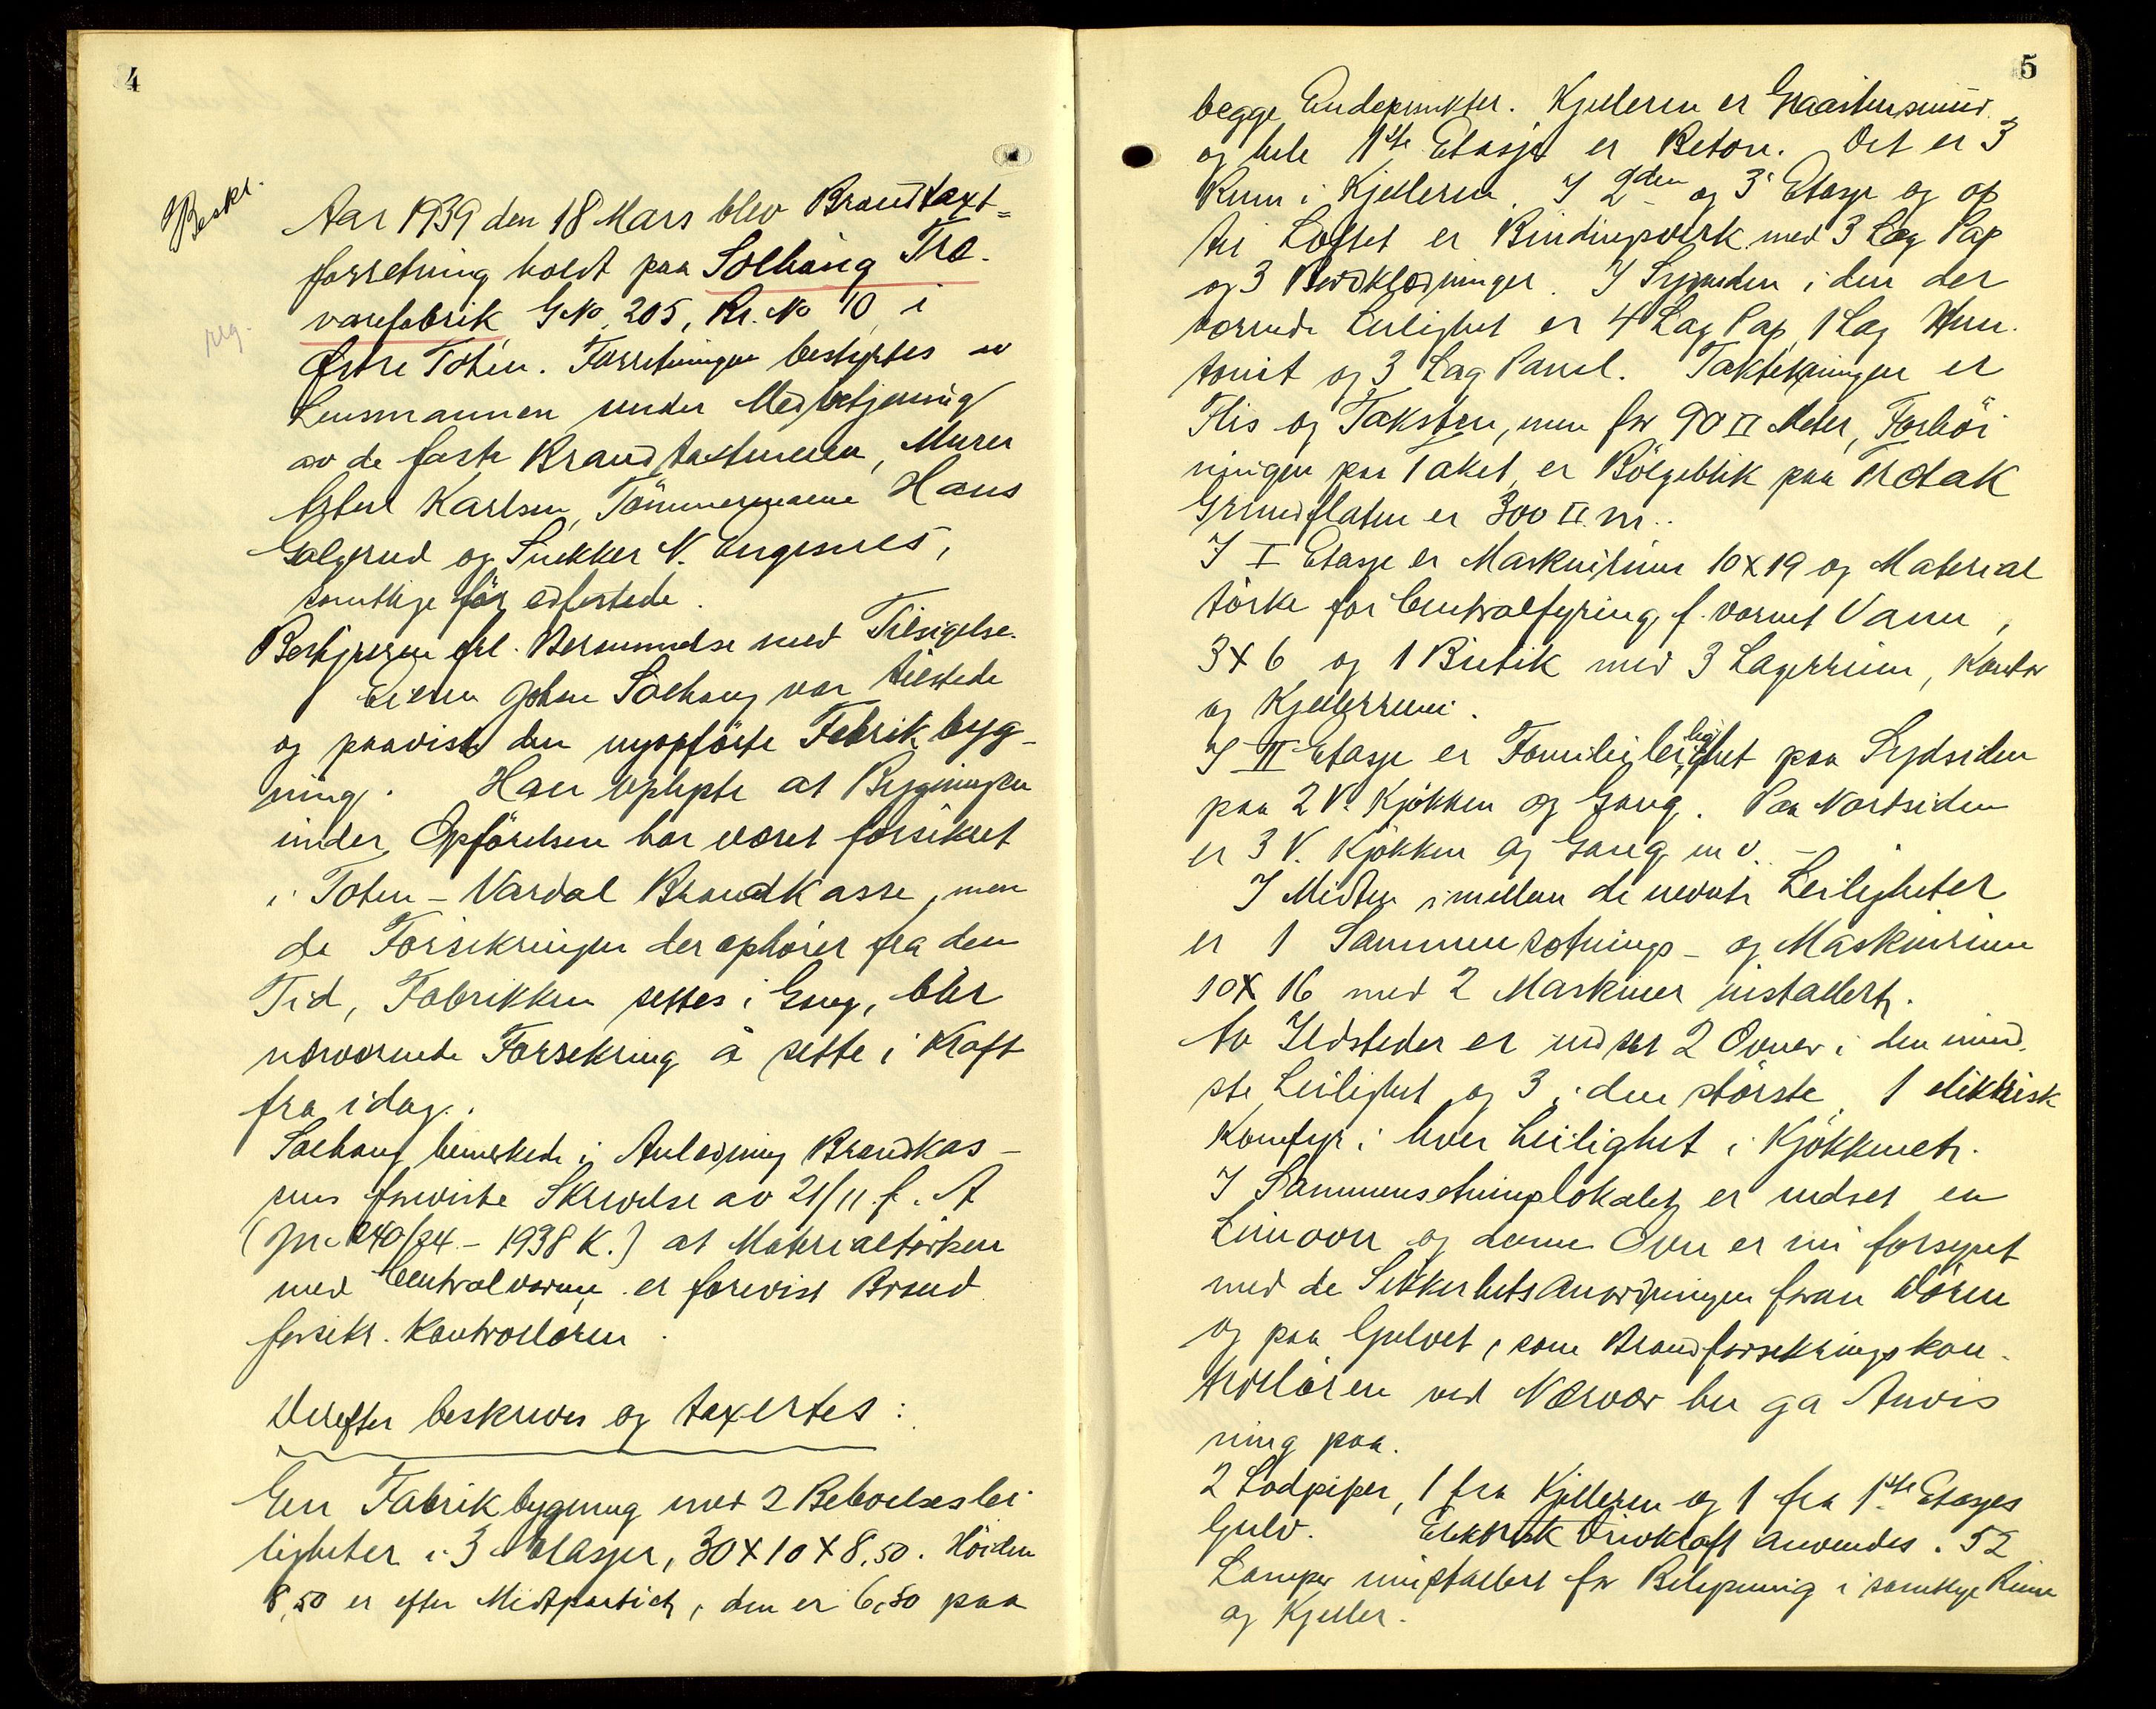 4
Beskr.
Aar 1939 den 18 Mars blev Brandtaxt=
forretning holdt paa Solhaug Træ-
varefabrik G No 205, Br. No 10 i
reg.
Østre Toten. Forretningen bestyrtes av
Lensmannen under Medbetjening
av de faste Brandtakstmenn, Murer
Karlsen, Tömmermann Hans
Galgerud og Snekker N. Engesnes,
samtlige för edfestede.
Bestyreren frl. Bersummelse med Tilsigelse.
Eieren Johan Solhaug var tilstede
og paaviste den nyopförte Fabrikbyg-
ning. Han oplyste at Bygningen
under Opförelsen har været forsikret
i Toten-Vardal Brandkasse, men
da Forsikringen der ophörer fra den
Tid, Fabrikken settes i Gang, blir
nærværende Forsekring å sette i Kraft
fra idag.
Solhaug bemerkede i Anledning Brandkas-
sens forviste Skrivelse av 21/11 f. A
(Jnr 240/24 - 1938 K.) at Materialtörken
med Centralvarme er forevist Brand
forsikr. Kontrollören.
Derefter beskreves og taxertes:
En Fabrikbygning med 2 Beboelseslei-
ligheter i 3 etasjer, 30 X 10 X 8,50. Höiden
8,50 er efter Midtpartiet, den er 6,50 paa
5
begge Endepunkter. Kjelleren er Graastensmur
og hele 1ste Etasje er Beton. Det er 3
Rum i Kjelleren. I 2den og 3' Etasje og op
til Loftet er Bindingverk med 3 Lag Pap
og 3 Bordklædninger. I Syenden i den der
værende Leilighet er 4 Lag Pap, 1 Lag Hun-
tonit og 3 Lag Panel. Taktekningen er
Flis og Taksten, men for 90 □ Meter, Forhöi
ningen paa Taket er Bölgeblik paa Trætak
Grundflaten er 300 □ m..
I I Etasje er Maskinrum 10 X 19 og Material
törke for Centralfyring f. varmt Vann,
3 X 6 og 1 Butik med 3 Lagerrum, Kontor
og Kjellerrum.
I II Etasje er Familieleilighet paa Sydsiden
paa 2 V. Kjökken og Gang. Paa Nordsiden
er 3 V. Kjökken og Gang m v. -
I Midten imellem de nevnte Leiligheter
er 1 Sammensætnings- og Maskinrum
10 X 16 med 2 Maskiner installert.
Av Ildsteder er indsat 2 Ovner i den mind-
ste Leilighet og 3 i den störste, 1 elektrisk
Komfyr i hver Leilighet i Kjökkenet.
I Sammensetningslokalet er indset en
Limovn og denne Ovn er nu forsynt
med de Sikkerhetsanordninger foran Dören
og paa Gulvet, som Brandforsekringskon-
trollören ved Nærvær her ga Anvis
ning paa.
2 Lodpiper, 1 fra Kjelleren og 1 fra 1ste Etasjes
Gulv. Elektrisk Drivkraft anvendes. 52
Lamper installert for Belysning i samtlige Rum
og Kjeller.